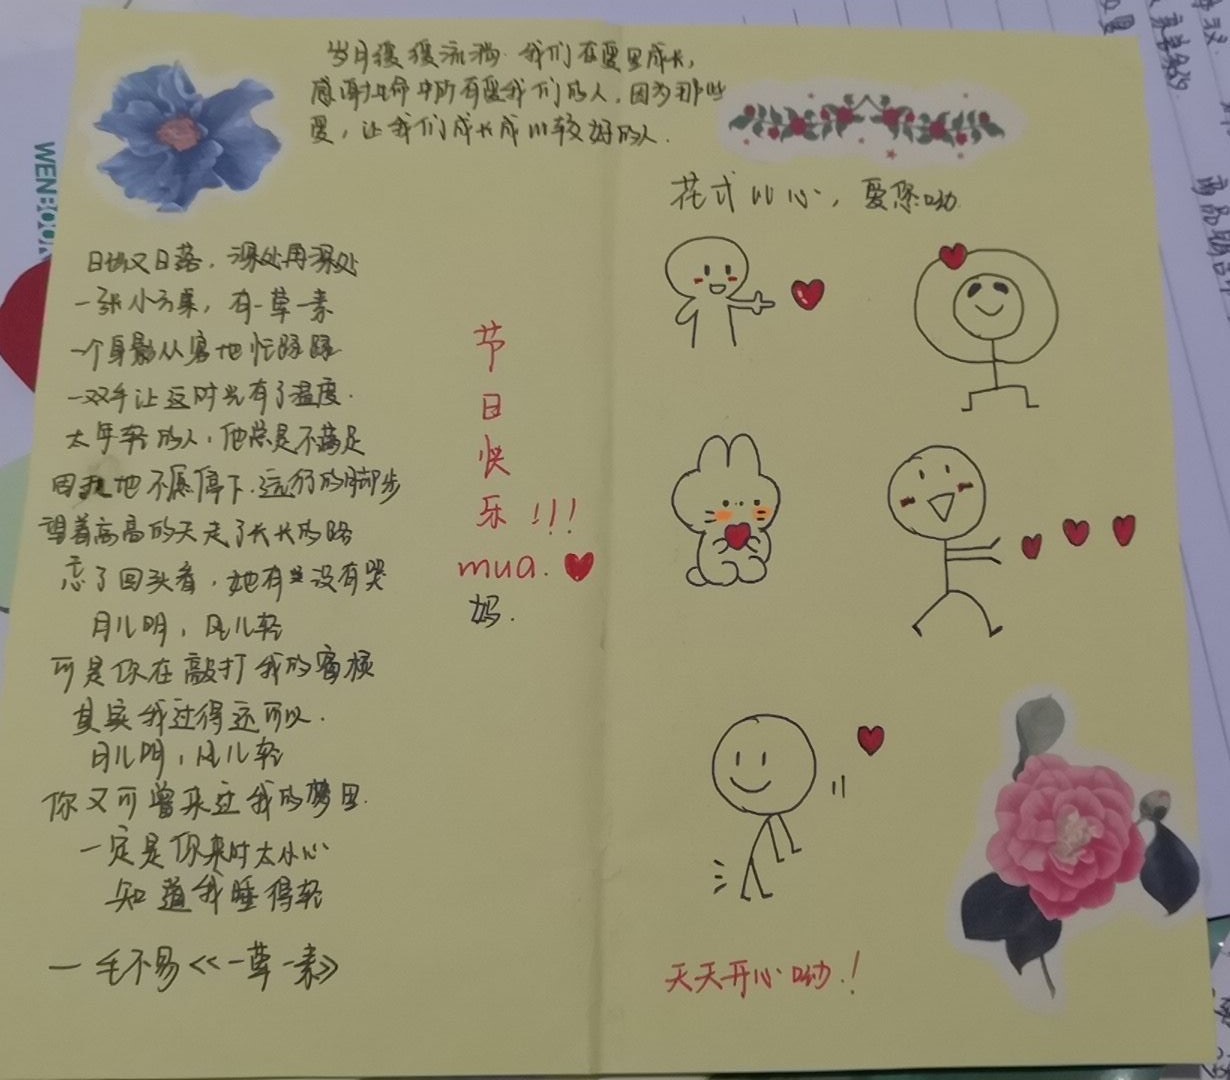 岁月缓缓流淌.我们在爱里成长,
感谢生命中所有爱我们的人.因为那些
爱,让我们成长成比较好的人.
日出又日落,深处再深处
一张小方桌,有一荤一素
一个身影从容地忙忙碌碌
一双手让这时光有了温度.
太年轻的人,他总是不满足
固执地不愿停下.远行的脚步
望着高高的天走了长长的路
忘了回头看,她有没有哭
月儿明,风儿轻
可是你在敲打我的窗棂
其实我过得还可以.
月儿明,风儿轻
你又可曾来过我的梦里.
一定是你来时太小心
知道我睡得轻
一毛不易《一荤一素》
节
日
快
乐!!!
mua.
妈.
花式比心,爱您呦
天天开心呦!
WENBOOK